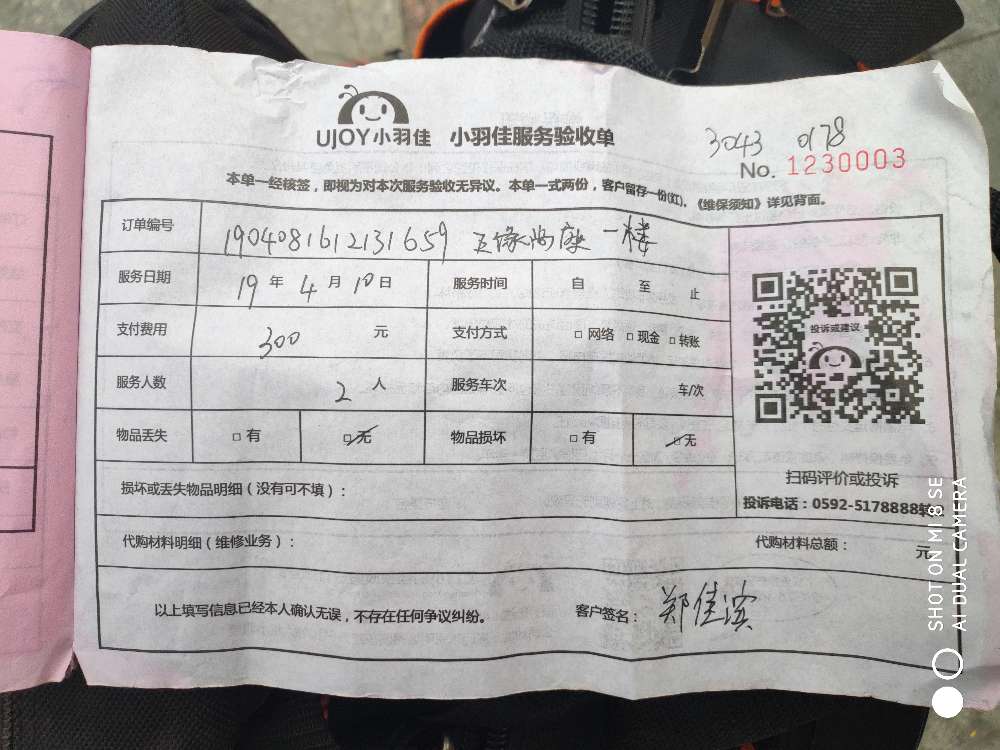 UJOY小羽佳 小羽佳服务验收单
3043 0178
No. 1230003
本单一经核签，即视为对本次服务验收无异议。本单一式两份，客户留存一份(红)。《维保须知》详见背面。
订单编号 190408161213165​9 五缘尚座 一楼
服务日期 19 年 4 月 10 日 服务时间 自 至 止
支付费用 300 元 支付方式 □ 网络 □ 现金 □ 转账
服务人数 2 人 服务车次 车/次
物品丢失 □ 有 □ 无 物品损坏 □ 有 □ 无
投诉或建议
扫码评价或投诉
投诉电话：0592-5178888转
损坏或丢失物品明细（没有可不填）：
代购材料明细（维修业务）： 代购材料总额： 元
以上填写信息已经本人确认无误，不存在任何争议纠纷。 客户签名： 郑佳滨
SHOT ON MI 8 SE
AI DUAL CAMERA